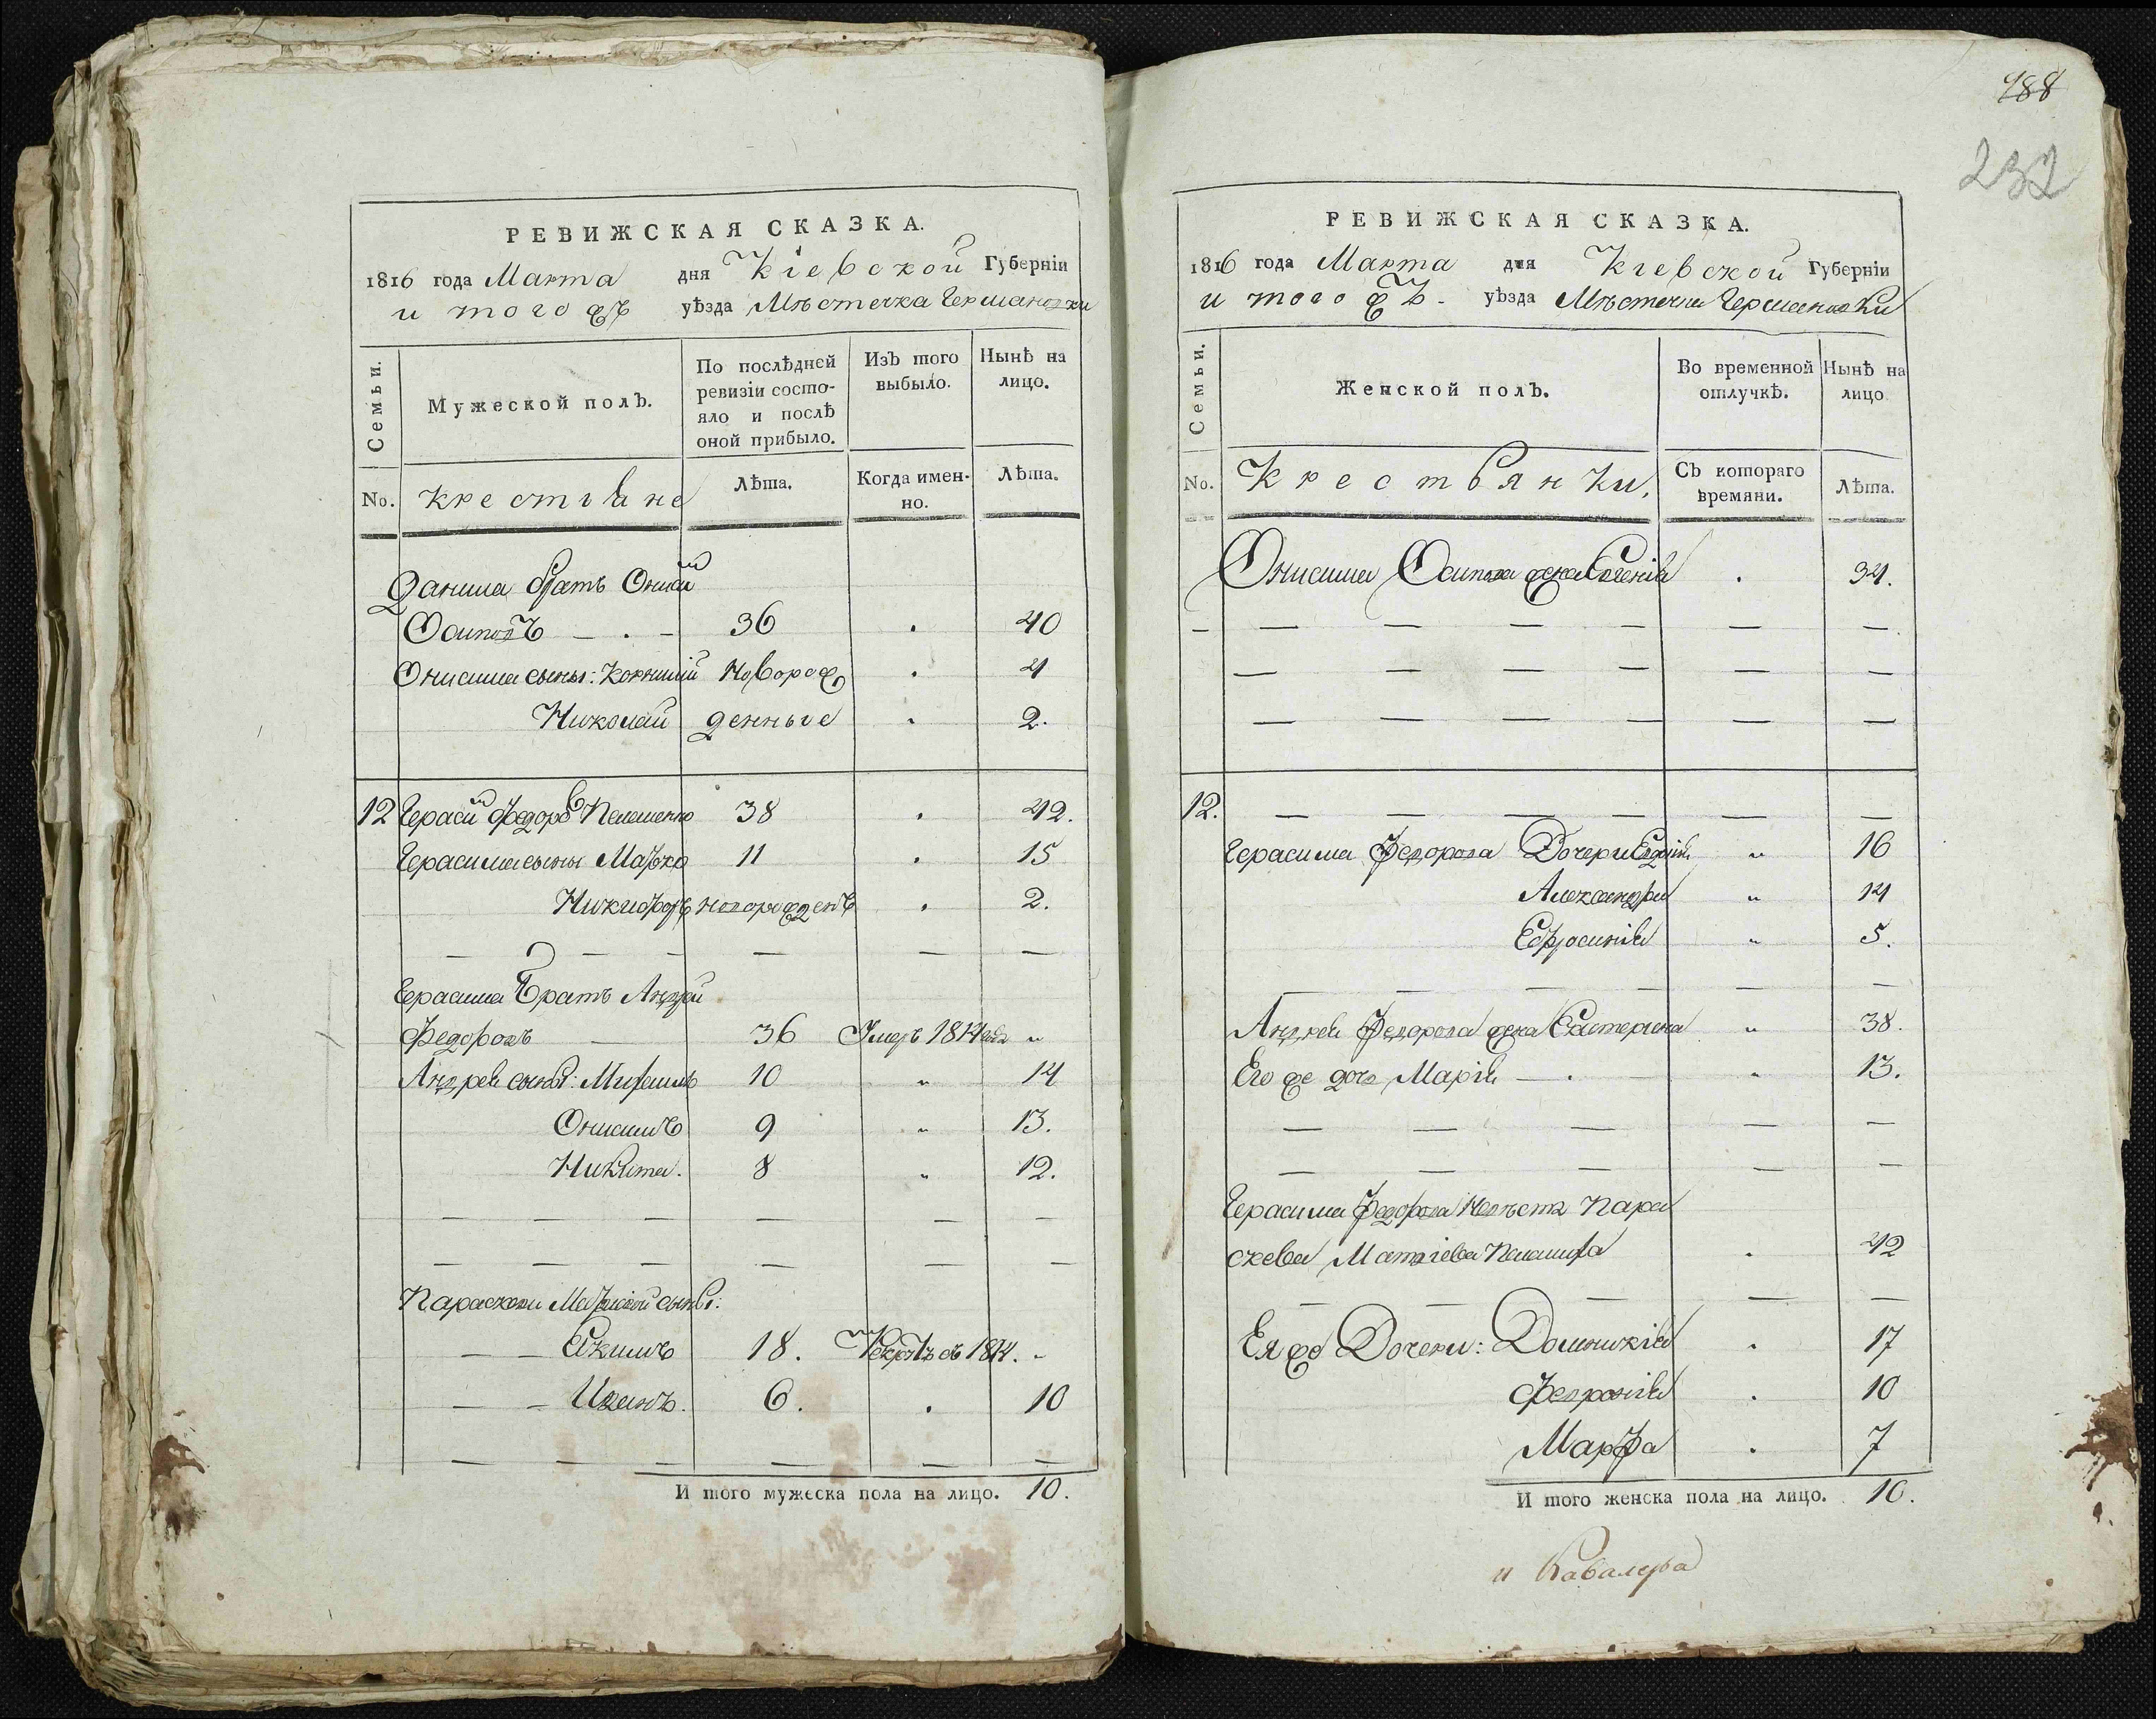 РЕВИЖСКАЯ СКАЗКА.
1816 года Марта дня Кіевской Губерніи
и того жъ уѣзда Мѣстечка Германовки
Семьи.
Мужеской полъ.
По послѣдней ревизіи состо-
яло и послѣ
оной прибыло.
Изъ того
выбыло.
Нынѣ на
лицо.
No.
крестьяне
Лѣта.
Когда имен-
но.
Лѣта.
Данила братъ Онисим
Осиповъ — . — 36 . 40
Онисима сыны: Корнилій Новорож . 4
Николай денные . 2.
12 Герасим Федоров Пелешенко 38 . 42.
Герасима сыны Марко 11 . 15
Никифоръ новорожденъ . 2.
— — — — — —
Герасима Братъ Андрей
Федоровъ — 36 Умеръ 1814 года „
Андрея сыны: Михаилъ 10 „ 14
Онисимъ 9 „ 13.
Никита. 8 „ 12.
— — — — — —
— — — — — —
Параскеви сыны:
— — Якимъ 18. въ 1814. „
— — Иванъ. 6. . 10
— — — — — —
И того мужеска пола на лицо. 10.
488
232
РЕВИЖСКАЯ СКАЗКА.
1816 года Марта дня Кіевской Губерніи
и того жъ уѣзда Мѣстечка Германовки
Семьи.
Женской полъ.
Во временной
отлучкѣ.
Нынѣ на
лицо
No.
Крестьянки.
Съ котораго
времяни.
Лѣта.
Онисима Осипова жена Евгенія . 34.
— — — — — — —
— — — — — —
— — — — — —
12. — — — — — —
Герасима Федорова Дочери Евдокія „ 16
Александра „ 14
Ефросинія „ 5.
— — — — — —
Андрея Федорова жена Екатерина „ 38.
Его же дочь Марія — . — „ 13.
— — — — —
— — — — —
Герасима Федорова Невѣстка Пара
скева . 42
— — — — —
Ея же Дочери: Домникія . 17
Феврнія . 10
Марфа . 7
И того женска пола на лицо. 10.
и Кавалера